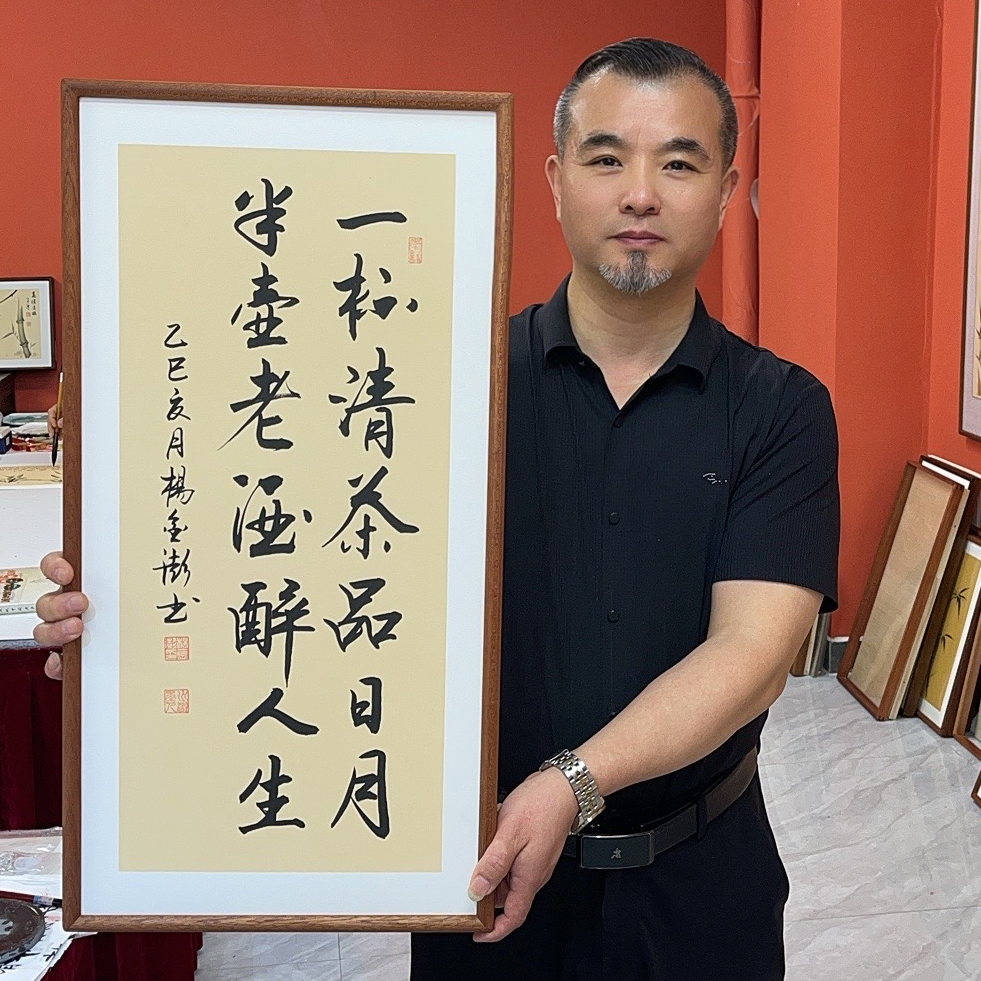 一杯清茶品日月
半壶老酒醉人生
乙巳亥月楊金澎书